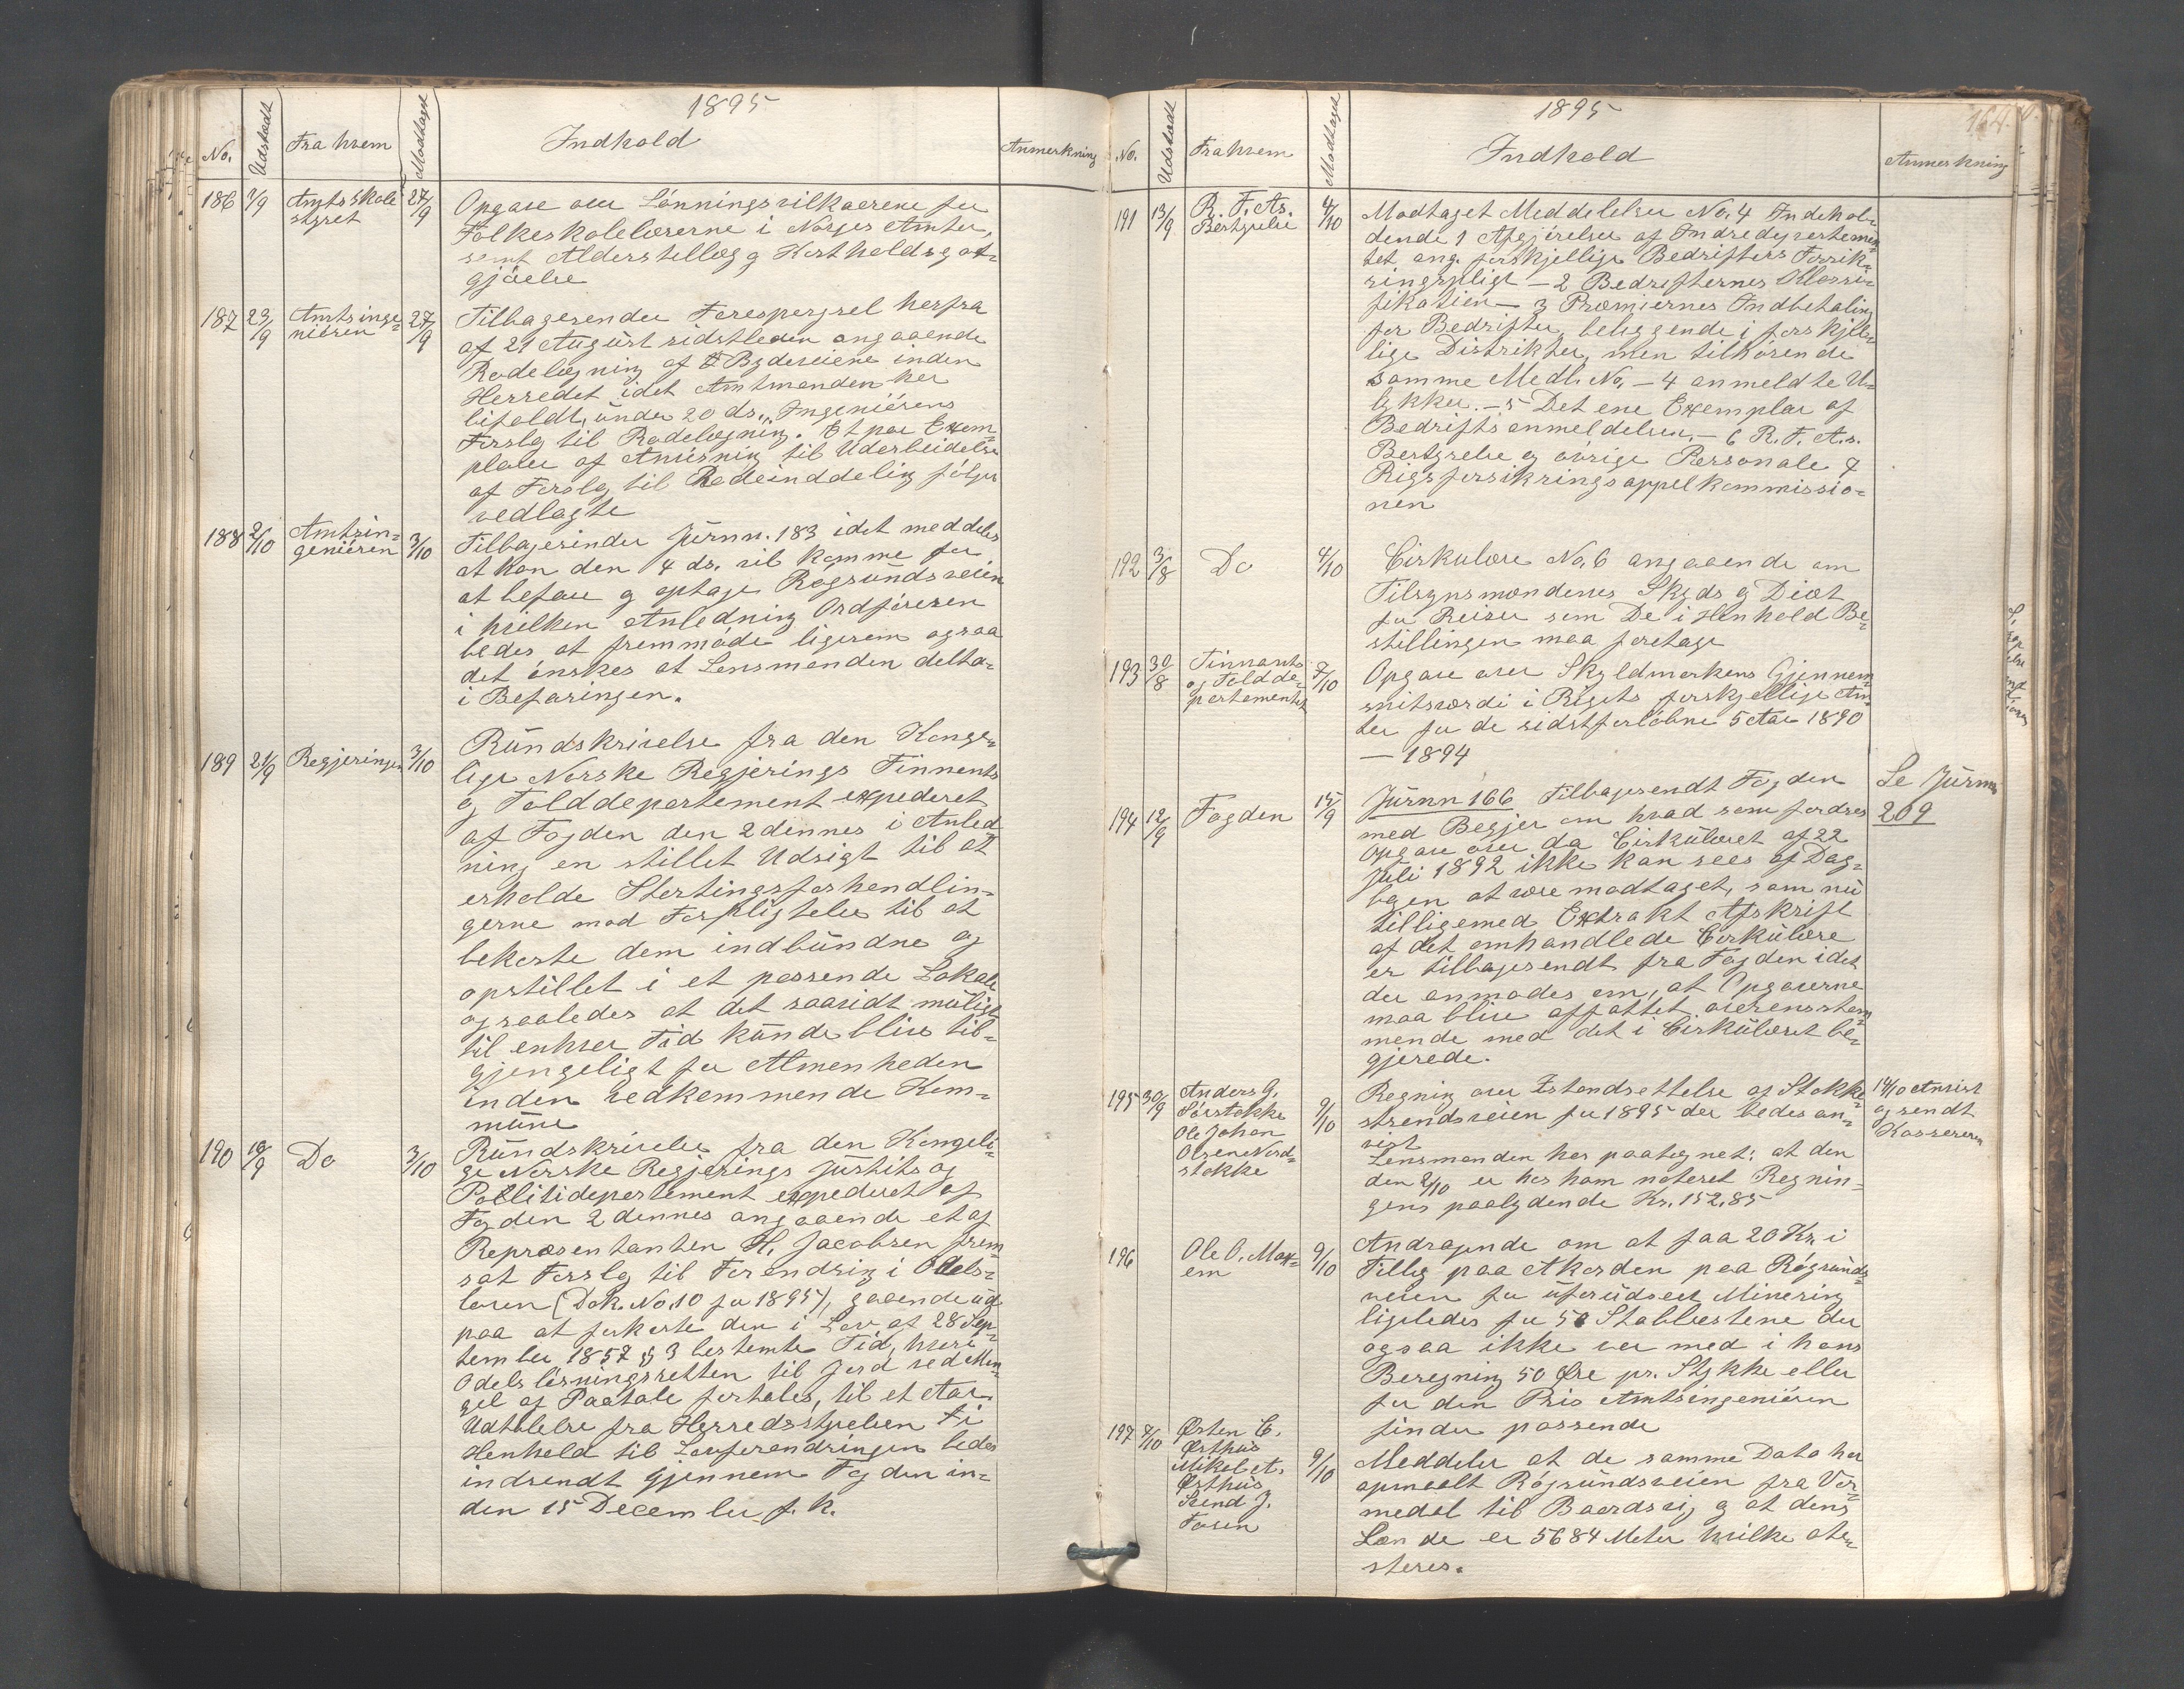 1895
No.
Udstædt
Fra hvem
Modtaget
Indhold
Anmerkning
186 7/9 Amtsskole
styret
27/9
Opgave over Lønningsvilkaarene for
Folkeskolelærerne i Norges Amter,
samt Alderstillæg og Kostholdsgodt-
gjøelse
187 23/9 Amtsinge=
niøren
27/9
Tilbagesender Forespørgsel herfra
af 21 August sidstleden angaaende
Rodelægning af Bygdeveiene inden
Herredet idet Amtmanden har
bifaldt, under 20 ds., Ingeniørens
Forslg til Rodelægning. Et par Exem=
plarer af Anvisning til Udarbeidelse
af Forslg til Rodeinddeling følger
vedlagte
188 2/10 Amtsin=
geniøren
3/10
Tilbagesender Jurnn. 183 idet meddeles
at han den 4 ds. vil komme for
at befare og optage Røgsundsveien
i hvilken Anledning Ordføreren
bedes at fremmøde ligesom ogsaa
det ønskes at Lensmanden delta=
i Befaringen.
189 21/9 Regjeringen 3/10
Rundskrivelse fra den Konge=
lige Norske Regjerings Finnants
og Tolddepartement expederet
af Fogden den 2 dennes i Anled
ning en stillet Udsigt til at
erholde Stortingsforhandlin=
gerne mod Forpligtelse til at
bekoste dem indbundne og
opstillet i et passende Lokale
og saaledes at det saavidt muligt
til enhver Tid kunde blive til=
gjengeligt for Almenheden
inden vedkommende Kom=
mune
190 10/9 Do 3/10
Rundskrivelse fra den Kongeli=
ge Norske Regjerings Justits og
Politidepartement expederet af
Fogden 2 dennes angaaende et af
Repræsentanten H. Jacobsen frem
sat Forslg til Forendring i Odels=
loven (Dok. No. 10 for 1895), gaaende ud
paa at forkorte den i Lov af 28 Sep=
tember 1857 § 3 bestemte Tid, hvori
Odelsløsningsretten til Jord ved Man
gel af Paatale fortabes, til et Aar.
Udtalelse fra Herredsstyrelsen i
Henhold til Lovforendringen bedes
indsendt gjennem Fogden in=
den 15 December f. k.
1895
164.
No.
Udstædt
Fra hvem
Modtaget
Indhold
Anmerkning
191 13/9 R. F. As.
Bestyrelse
4/10
Modtaget Meddelelser No. 4 Indehol=
dende 1 Afgjørelser af Indredepartemen
tet ang. forskjellige Bedrifters Forsik=
ringspligt – 2 Bedrifternes Klassi=
fikation – 3 Præmiernes Indbetaling
for Bedrifter, beliggende i forskjel=
lige Distrikter, men tilhørende
samme Medl. No. – 4 anmeldte U=
lykker. – 5 Det ene Exemplar af
Bedriftsanmeldelsen. – 6 R. F. A.s.
Bestyrelse og øvrige Personale 7
Rigsforsikringsappelkommissio=
nen
192 3/8 Do 4/10
Cirkulære No. 6 angaaende om
Tilsynsmændenes Skyds og Diæt
for Reiser som De i Henhold Be=
stillingen maa foretage
193 30/8 Finnants
og Toldde=
partementet
7/10
Opgave over Skyldmarkens Gjennem
snitsværdi i Rigets forskjellige Am
ter for de sidstforløbne 5 Aar 1890
– 1894
194 12/9 Fogden 15/9
Jurnn 166 Tilbagesendt Fogden
med Begjer om hvad som fordres
Opgave over da Cirkulæret af 22
Juli 1892 ikke kan sees af Dag=
bogen at være modtaget, som nu
tilligemed Extrakt Afskrift
af det omhandlede Cirkulære
er tilbagesendt fra Fogden idet
der anmodes om, at Opgaverne
maa blive affattet overensstem
mende med det i Cirkulæret be=
gjerede.
Se Jurnn
209
195 30/9 Anders G.
Sørstokke
Ole Johan
Olsen Nord=
stokke
9/10
Regning over Istandsettelse af Stokke=
strandsveien for 1895 der bedes an=
vist
Lensmanden har paategnet: at den
den 2/10 er hos ham noteret Regnin=
gens paalydende Kr. 152.85
14/10 Anvist
og sendt
Kassereren
196 Ole O. Mox=
em
9/10
Andragende om at faa 20 Kr. i
Tillæg paa Akorden paa Røgsunds=
veien for uforudseet Minering
ligeledes for 50 Stabbestene der
ogsaa ikke var med i hans
Beregning 50 Øre pr. Stykke eller
for den Pris Amtsingeniøren
finder passende
197 7/10 Østen E.
Østhus
Mikal A.
Østhus
Svend J.
Fosen
9/10
Meddeler at de samme Dato har
opmaalt Røgsundsveien fra Vor=
medal til Baardsvig og at dens
Længde er 5684 Meter hvilke ate=
steres.